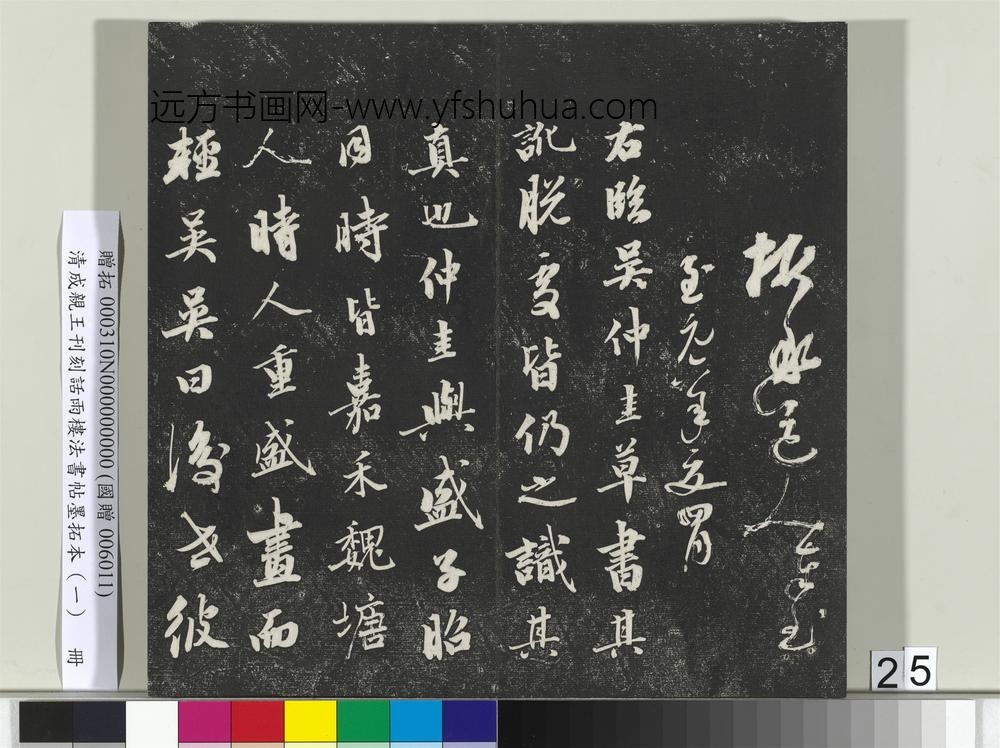 远方书画网-www.yfshuhua.com
道人
至元年夏四月
右臨吳仲圭草書其
訛脫處皆仍之識其
真也仲圭與盛子昭
同時皆嘉禾魏塘
人時人重盛畫而
輕吳吳曰後世彼
贈拓 000310N000000000(國贈 006011)
清成親王刊刻話雨樓法書帖墨拓本(一) 冊
25